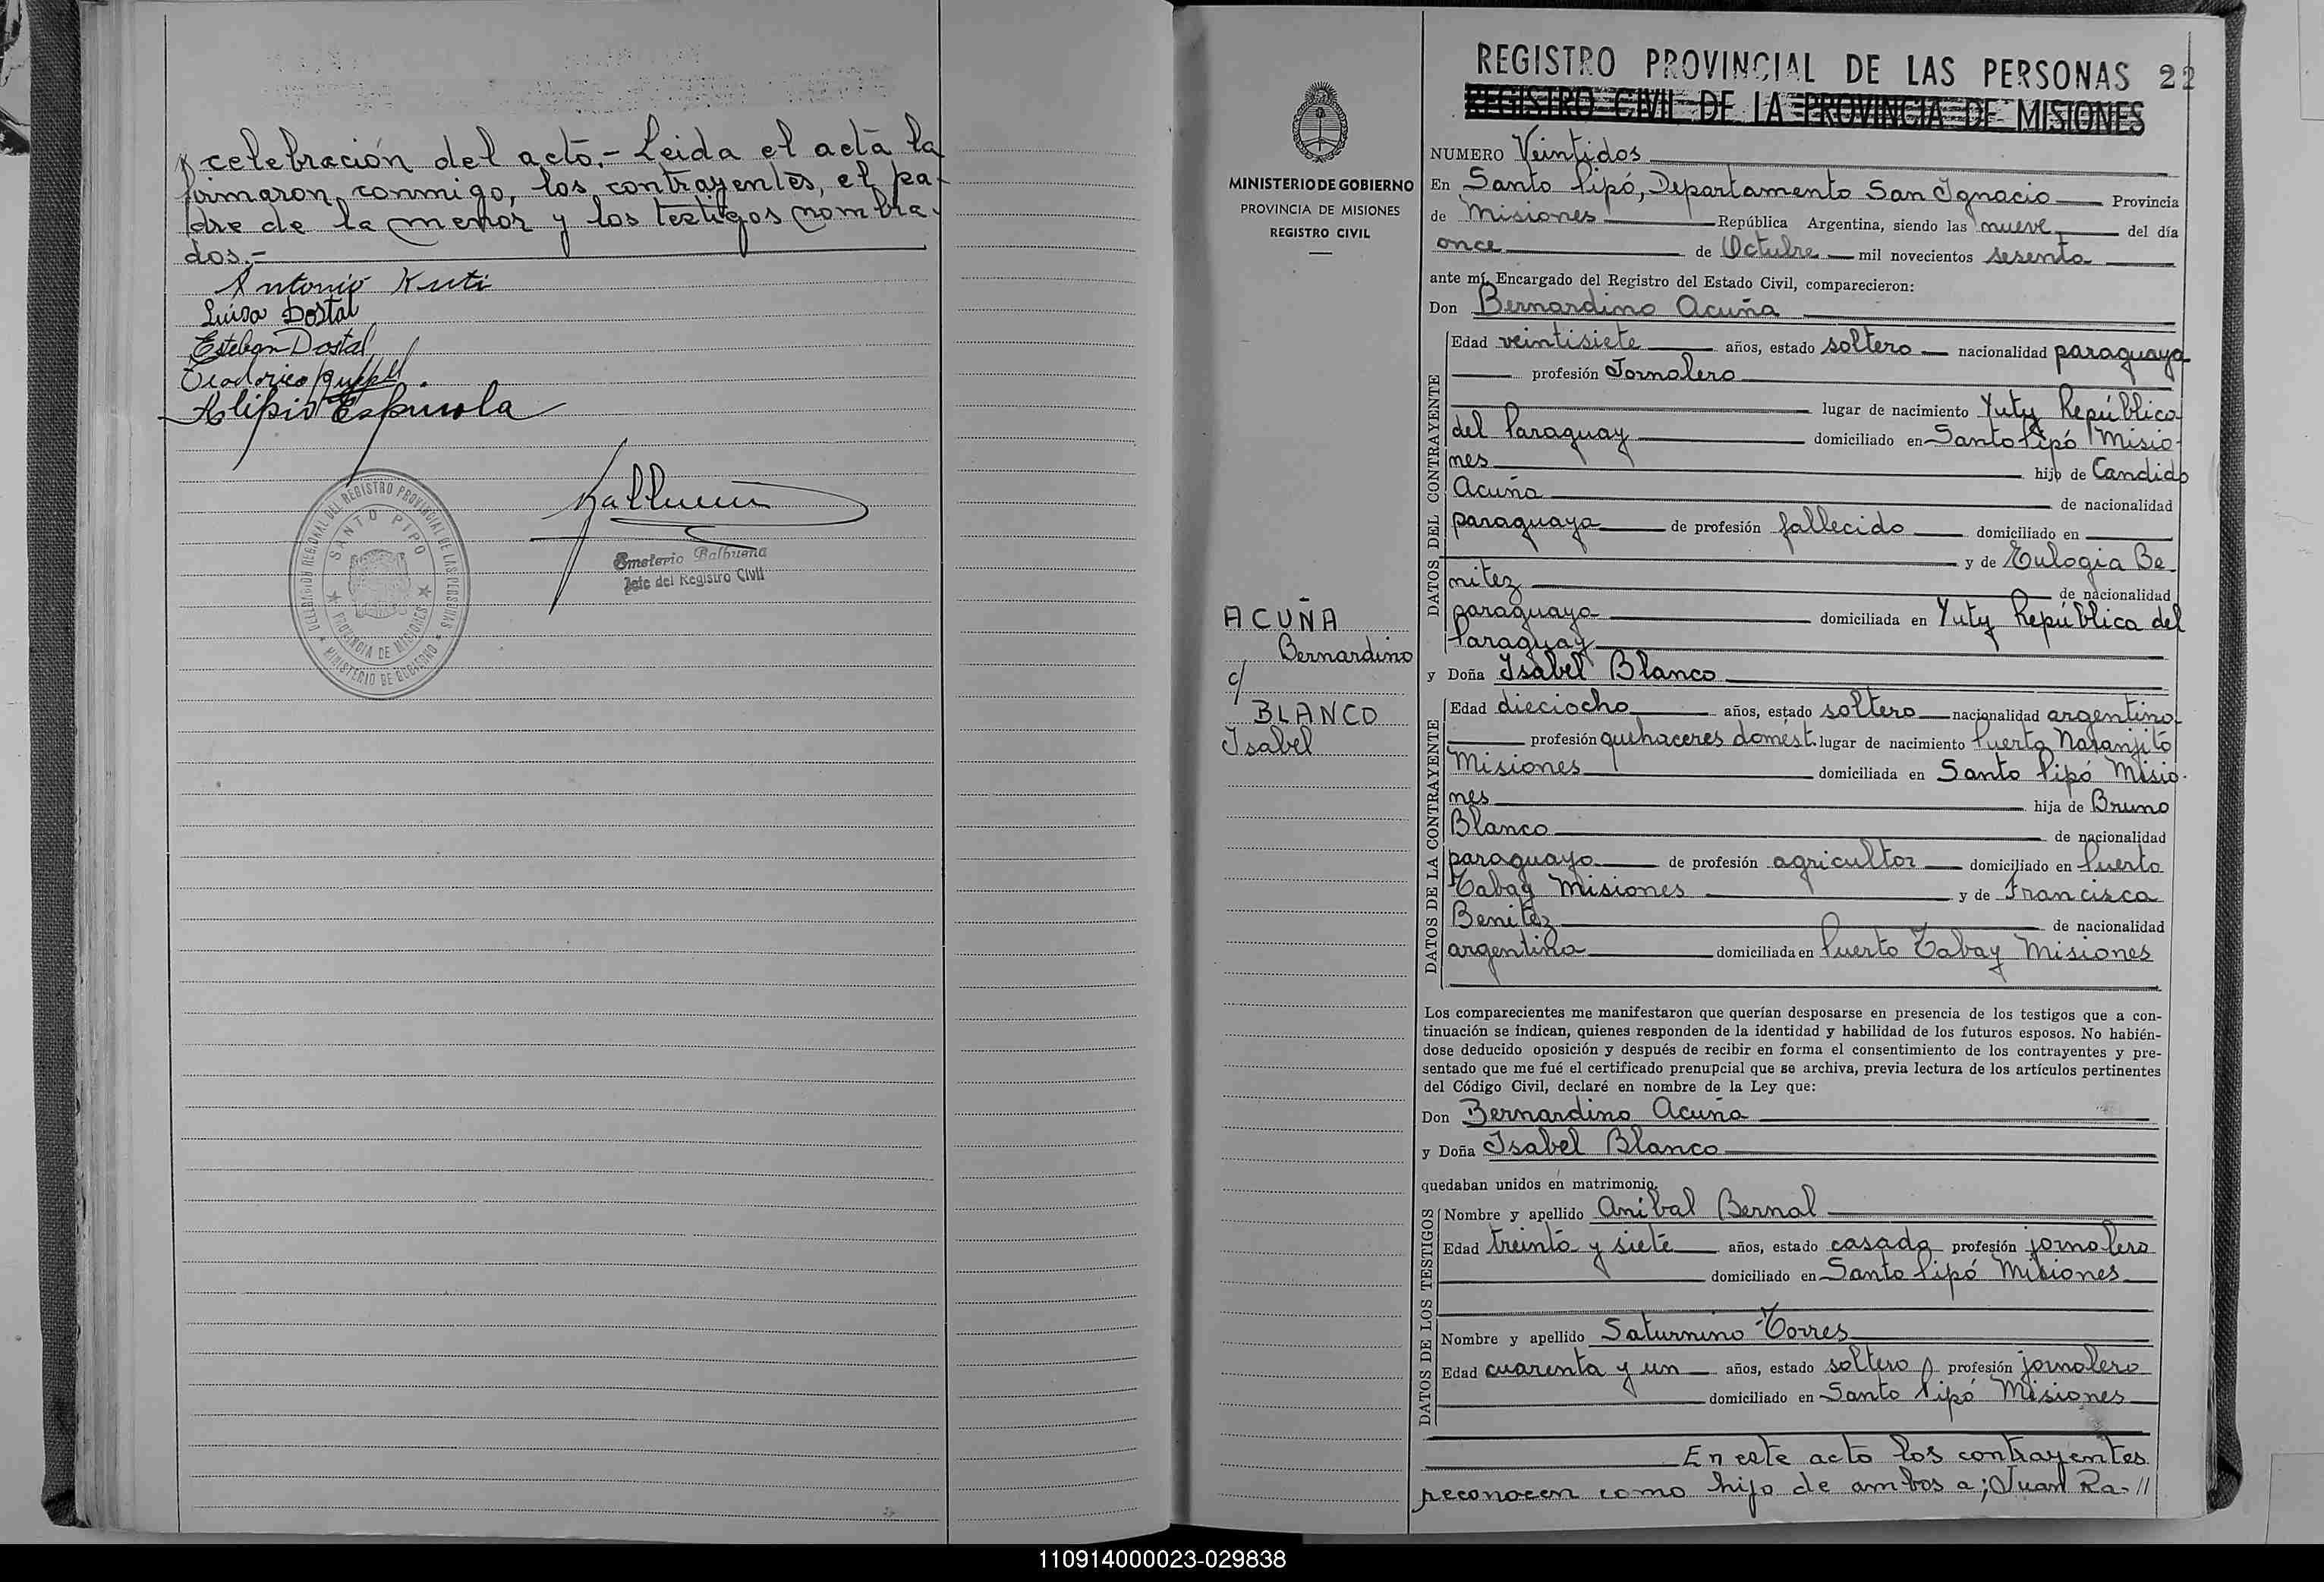 celebración del acto.- Leida el acta la
firmaron conmigo, los contrayentes, el pa-
dre de la menor y los testigos nombra-
dos.-
Antonio Kuti
Luisa Dostal
Esteban Dostal
Teodorico
Alipio Espinola
DELEGACION REGIONAL DEL REGISTRO PROVINCIAL DE LAS PERSONAS
SANTO PIPO
PROVINCIA DE MISIONES
MINISTERIO DE GOBIERNO
Emeterio Balbuena
Jefe del Registro Civil
MINISTERIO DE GOBIERNO
PROVINCIA DE MISIONES
REGISTRO CIVIL
ACUÑA
Bernardino
c/
BLANCO
Isabel
REGISTRO PROVINCIAL DE LAS PERSONAS 22
REGISTRO CIVIL DE LA PROVINCIA DE MISIONES
NUMERO Veintidos
En Santo Pipó, Departamento San Ignacio Provincia
de Misiones República Argentina, siendo las nueve del día
once de Octubre mil novecientos sesenta
ante mí, Encargado del Registro del Estado Civil, comparecieron:
Don Bernardino Acuña
DATOS DEL CONTRAYENTE
Edad veintisiete años, estado soltero nacionalidad paraguaya
profesión Jornalero
lugar de nacimiento Yuty República
del Paraguay domiciliado en Santo Pipó Misio-
nes hijo de Candido
Acuña de nacionalidad
paraguaya de profesión fallecido domiciliado en
y de Eulogia Be-
nitez de nacionalidad
paraguaya domiciliada en Yuty República del
Paraguay
y Doña Isabel Blanco
DATOS DE LA CONTRAYENTE
Edad dieciocho años, estado soltera nacionalidad argentina
profesión quehaceres domést. lugar de nacimiento Puerto Naranjito
Misiones domiciliada en Santo Pipó Misio-
nes hija de Bruno
Blanco de nacionalidad
paraguaya de profesión agricultor domiciliado en Puerto
Tabay Misiones y de Francisca
Benitez de nacionalidad
argentina domiciliada en Puerto Tabay Misiones
Los comparecientes me manifestaron que querían desposarse en presencia de los testigos que a con-
tinuación se indican, quienes responden de la identidad y habilidad de los futuros esposos. No habién-
dose deducido oposición y después de recibir en forma el consentimiento de los contrayentes y pre-
sentado que me fué el certificado prenupcial que se archiva, previa lectura de los artículos pertinentes
del Código Civil, declaré en nombre de la Ley que:
Don Bernardino Acuña
y Doña Isabel Blanco
quedaban unidos en matrimonio.
DATOS DE LOS TESTIGOS
Nombre y apellido Anibal Bernal
Edad treinta y siete años, estado casado profesión jornalero
domiciliado en Santo Pipó Misiones
Nombre y apellido Saturnino Torres
Edad cuarenta y un años, estado soltero profesión jornalero
domiciliado en Santo Pipó Misiones
En este acto los contrayentes
reconocen como hijo de ambos a; Juan Ra-//
110914000023-029838